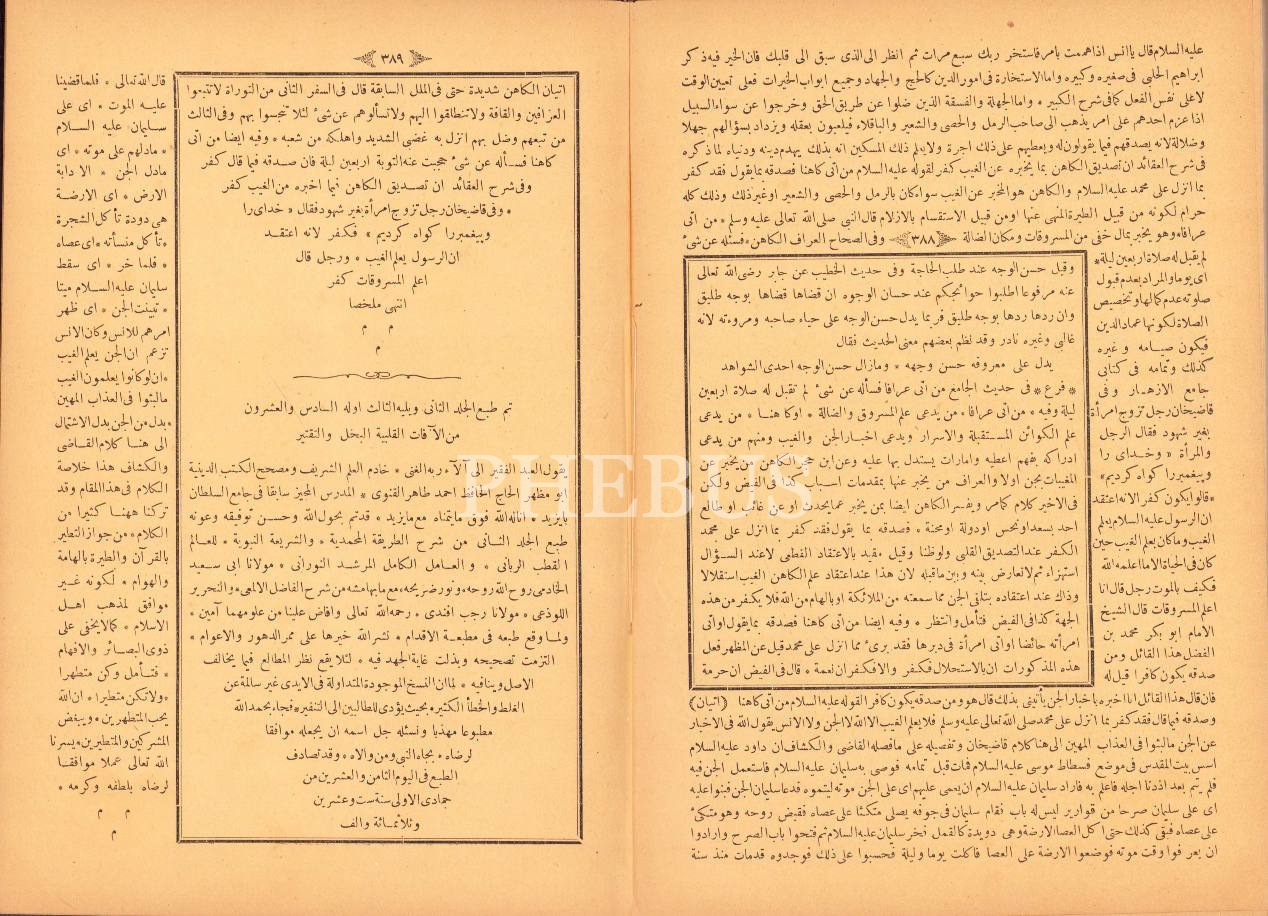 عليه السلام قال يا انس اذا هممت بامر فاستخر ربك سبع مرات ثم انظر الى الذى سبق الى قلبك فان الخير فيه ذكر
ابراهيم الحلبى فى صغيره وكبيره واما الاستخارة فى امور الدين كالحج والجهاد وجميع ابواب الخيرات فعلى تعيين الوقت
لا على نفس الفعل كما فى شرح الكبير * واما الجهلة والفسقة الذين ضلوا عن طريق الحق وخرجوا عن سواء السبيل
اذا عزم احدهم على امر يذهب الى صاحب الرمل والحصى والشعير والباقلاء فيلعبون بعقله ويزداد بسؤالهم جهلا
وضلالة لانه يصدقهم فيما يقولون له ويعطيهم على ذلك اجرة ولا يعلم ذلك المسكين انه بذلك يهدم دينه ودنياه لما ذكره
فى شرح العقائد ان تصديق الكاهن بما يخبره عن الغيب كفر لقوله عليه السلام من اتى كاهنا فصدقه بما يقول فقد كفر
بما انزل على محمد عليه السلام والكاهن هو المخبر عن الغيب سواء كان بالرمل والحصى والشعير او غير ذلك وذلك كله
حرام لكونه من قبيل الطيرة المنهى عنها او من قبيل الاستقسام بالازلام قال النبى صلى الله تعالى عليه وسلم * من اتى
عرافا * وهو يخبر بمال خفى من المسروقات ومكان الضالة ٣٨٨ وفى الصحاح العراف الكاهن * فسئله عن شئ
لم يقبل له صلاة اربعين ليلة *
اى يوما والمراد بعدم قبول
صلوته عدم كمالها وتخصيص
الصلاة لكونها عماد الدين
فيكون صيامه وغيره
كذلك وتمامه فى كتابى
جامع الازهار وفى
قاضيخان رجل تزوج امرأة
بغير شهود فقال الرجل
والمرأة * وخداى را
وپيغمبررا كواه كرديم *
قالوا يكون كفرا لانه اعتقد
ان الرسول عليه السلام يعلم
الغيب وما كان يعلم الغيب حين
كان فى الحياة الا ما اعلمه الله
فكيف بالموت رجل قال انا
اعلم المسروقات قال الشيخ
الامام ابو بكر محمد بن
الفضل هذا القائل ومن
صدقه يكون كافرا قيل له
وقيل حسن الوجه عند طلب الحاجة وفى حديث الخطيب عن جابر رضى الله تعالى
عنه مرفوعا اطلبوا حوائجكم عند حسان الوجوه ان قضاها قضاها بوجه طليق
وان ردها ردها بوجه طليق فربما يدل حسن الوجه على حياء صاحبه ومروءته لانه
غالبى وغيره نادر وقد نظم بعضهم معنى الحديث فقال
يدل على معروفه حسن وجهه * وما زال حسن الوجه احدى الشواهد
* فرع * فى حديث الجامع من اتى عرافا فسأله عن شئ لم تقبل له صلاة اربعين
ليلة وفيه * من اتى عرافا * من يدعى علم المسروق والضالة * او كاهنا * من يدعى
علم الكوائن المستقبلة والاسرار ويدعى اخبار الجن والغيب ومنهم من يدعى
ادراكه بفهم اعطيه وامارات يستدل بها عليه وعن ابن حجر الكاهن من يخبر عن
المغيبات بجن اولا والعراف من يخبر عنها بمقدمات اسباب كذا فى الفيض ولكن
فى الاخير كلام كما مر ويفسر الكاهن ايضا بمن يخبر عما يحدث او عن غائب او طالع
احد بسعد او نحس او دولة او محنة * فصدقه بما يقول فقد كفر بما انزل على محمد
الكفر عند التصديق القلبى ولو ظنا وقيل مقيد بالاعتقاد القطعى لا عند السؤال
استهزاء ثم لا تعارض بينه وبين ما قبله لان هذا عند اعتقاد علم الكاهن الغيب استقلالا
وذاك عند اعتقاده بتلقى الجن مما سمعته من الملائكة او بالهام من الله فلا يكفر من هذه
الجهة كذا فى الفيض فتأمل وانتظر * وفيه ايضا من اتى كاهنا فصدقه بما يقول او اتى
امرأته حائضا او اتى امرأة فى دبرها فقد برئ مما انزل على محمد قيل عن المظهر فعل
هذه المذكورات ان بالاستحلال فكفر والا فكفران نعمة * قال فى الفيض ان حرمة
فان قال هذا القائل انا اخبره باخبار الجن يأتينى بذلك قال هو ومن صدقه يكون كافرا لقوله عليه السلام من اتى كاهنا (اتيان)
وصدقه فيما قال فقد كفر بما انزل على محمد صلى الله تعالى عليه وسلم فلا يعلم الغيب الا الله لا الجن ولا الانس يقول الله فى الاخبار
عن الجن ما لبثوا فى العذاب المهين الى هنا كلام قاضيخان وتفصيله على ما فصله القاضى والكشاف ان داود عليه السلام
اسس بيت المقدس فى موضع فسطاط موسى عليه السلام فمات قبل تمامه فوصى به سليمان عليه السلام فاستعمل الجن فيه
فلم يتم بعد اذ دنا اجله فاعلم به فاراد سليمان عليه السلام ان يعمى عليهم اى على الجن موته ليتموه فدعا سليمان الجن فبنوا عليه
اى على سليمان صرحا من قوارير ليس له باب فقام سليمان فى جوفه يصلى متكئا على عصاه فقبض روحه وهو متكئ
على عصاه فبقى كذلك حتى اكل العصا الارضة وهى دويدة كالقمل فخر سليمان عليه السلام ثم فتحوا باب الصرح وارادوا
ان يعرفوا وقت موته فوضعوا الارضة على العصا فاكلت يوما وليلة فحسبوا على ذلك فوجدوه قد مات منذ سنة
٣٨٩
اتيان الكاهن شديدة حتى فى الملل السابقة قال فى السفر الثانى من التوراة لا تتبعوا
العرافين والقافة ولا تنطلقوا اليهم ولا تسألوهم عن شئ لئلا تنجسوا بهم وفى الثالث
من تبعهم وضل بهم انزل به غضبى الشديد واهلكه من شعبه * وفيه ايضا من اتى
كاهنا فسأله عن شئ حجبت عنه التوبة اربعين ليلة فان صدقه فيما قال كفر
وفى شرح العقائد ان تصديق الكاهن فيما اخبره من الغيب كفر
* وفى قاضيخان رجل تزوج امرأة بغير شهود فقال * خداى را
وپيغمبررا كواه كرديم * فكفر لانه اعتقد
ان الرسول يعلم الغيب * ورجل قال
اعلم المسروقات كفر
انتهى ملخصا
م م
م
تم طبع الجلد الثانى ويليه الثالث اوله السادس والعشرون
من الآفات القلبية البخل والتقتير
يقول العبد الفقير الى آلاء ربه الغنى * خادم العلم الشريف ومصحح الكتب الدينية
ابو مظهر الحاج الحافظ احمد طاهر القنوى * المدرس المجيز سابقا فى جامع السلطان
بايزيد * اناله الله فوق ما يتمناه مع ما يزيد * قد تم بحول الله وحسن توفيقه وعونه
طبع الجلد الثانى من شرح الطريقة المحمدية * والشريعة النبوية * للعالم
القطب الربانى * والعامل الكامل المرشد النورانى * مولانا ابى سعيد
الخادمى روح الله روحه * ونور ضريحه * مع ما بهامشه من شرح الفاضل الالمعى * والنحرير
اللوذعى * مولانا رجب افندى * رحمه الله تعالى وافاض علينا من علومهما آمين *
ولما وقع طبعه فى مطبعة الاقدام * نشر الله خيرها على ممر الدهور والاعوام *
التزمت تصحيحه وبذلت غاية الجهد فيه * لئلا يقع نظر المطالع فيما يخالف
الاصل وينافيه * لما ان النسخ الموجودة المتداولة فى الايدى غير سالمة عن
الغلط والخطأ الكثير * بحيث يؤدى للطالبين الى التنفير * فجاء بحمد الله
مطبوعا مهذبا ونسئله جل اسمه ان يجعله موافقا
لرضاه * بجاه النبى ومن والاه * وقد تصادف
الطبع فى اليوم الثامن والعشرين من
جمادى الاولى سنة ست وعشرين
وثلاثمائة والف
قال الله تعالى * فلما قضينا
عليه الموت * اى على
سليمان عليه السلام
* ما دلهم على موته * اى
ما دل الجن * الا دابة
الارض * اى الارضة
هى دودة تأكل الشجرة
* تأكل منسأته * اى عصاه
* فلما خر * اى سقط
سليمان عليه السلام ميتا
* تبينت الجن * اى ظهر
امرهم للانس وكان الانس
تزعم ان الجن يعلم الغيب
* ان لو كانوا يعلمون الغيب
ما لبثوا فى العذاب المهين
* بدل من الجن بدل الاشتمال
الى هنا كلام القاضى
والكشاف هذا خلاصة
الكلام فى هذا المقام وقد
تركنا ههنا كثيرا من
الكلام * من جواز التطير
بالقرآن والطيرة بالهامة
والهوام * لكونه غير
موافق لمذهب اهل
الاسلام * كما لا يخفى على
ذوى البصائر والافهام
* فتأمل وكن متطهرا
* ولا تكن متطيرا * ان الله
يحب المتطهرين * ويبغض
المشركين والمتطيرين * يسرنا
الله تعالى عملا موافقا
لرضاه بلطفه وكرمه *
م م
م
PHEBUS